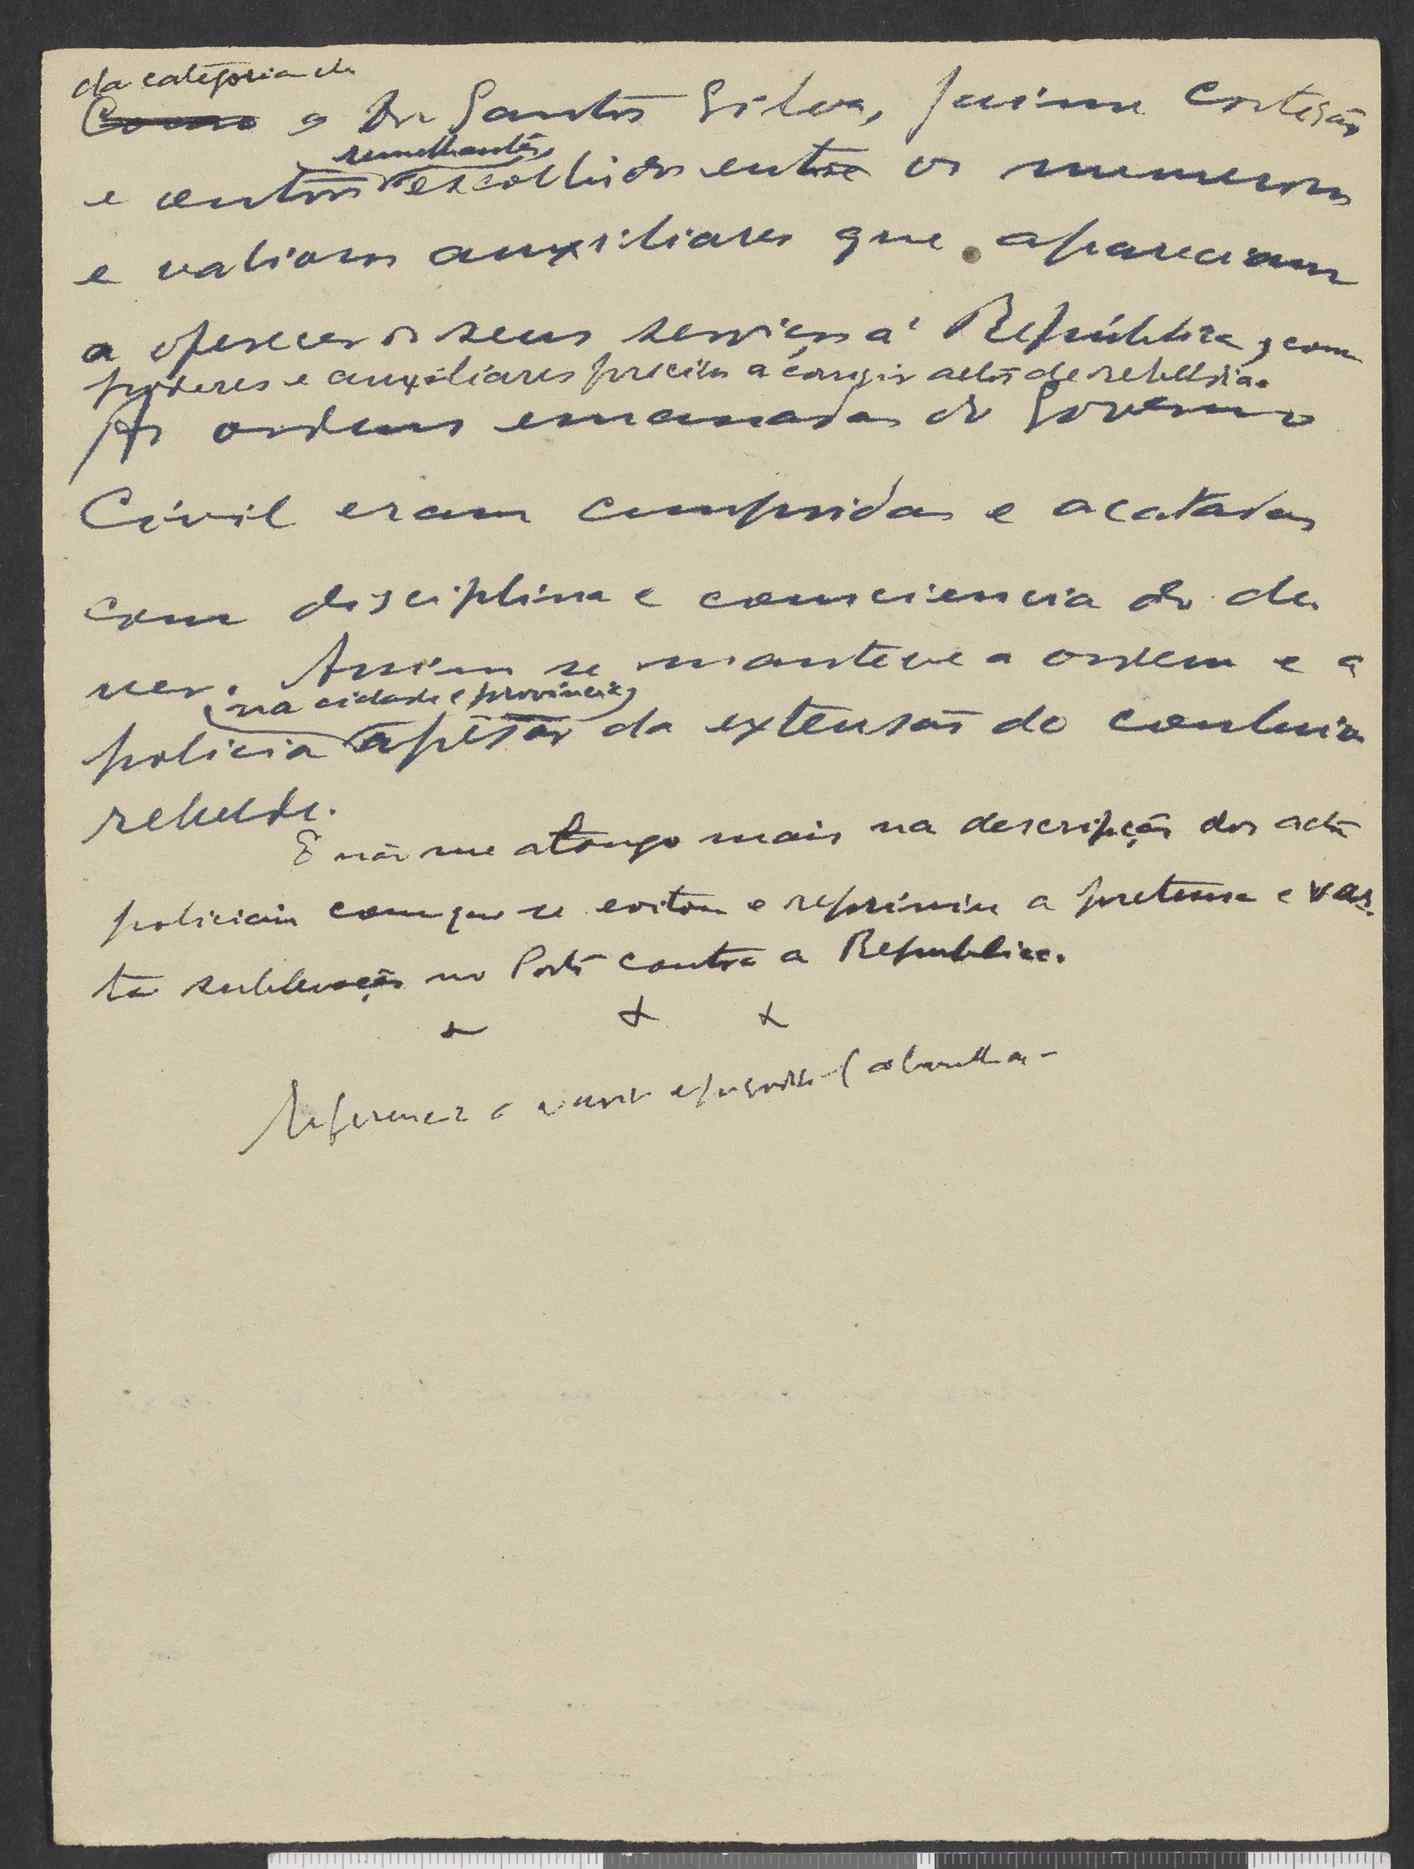 da categoria de
Como o Dr Santos Silva, Jaime Cortesão
semelhantes
e outros escolhidos entre os numerosos
e valiosos auxiliares que apareciam
a oferecer os seus serviços á República, com
poderes e auxiliares precisos a corrigir actos de rebeldia.
As ordens emanadas do Governo
Civil eram cumpridas e acatadas
com disciplina e consciencia do de
ver. Assim se manteve a ordem e a
na cidade e provincia,
policia apesar da extensão do conluio
rebelde.
E não me alongo mais na descripção dos actos
policiais com que se evitou e reprimiu a pretensa e vas-
ta sublevação no Porto contra a Republica.
x x x
Referencia a